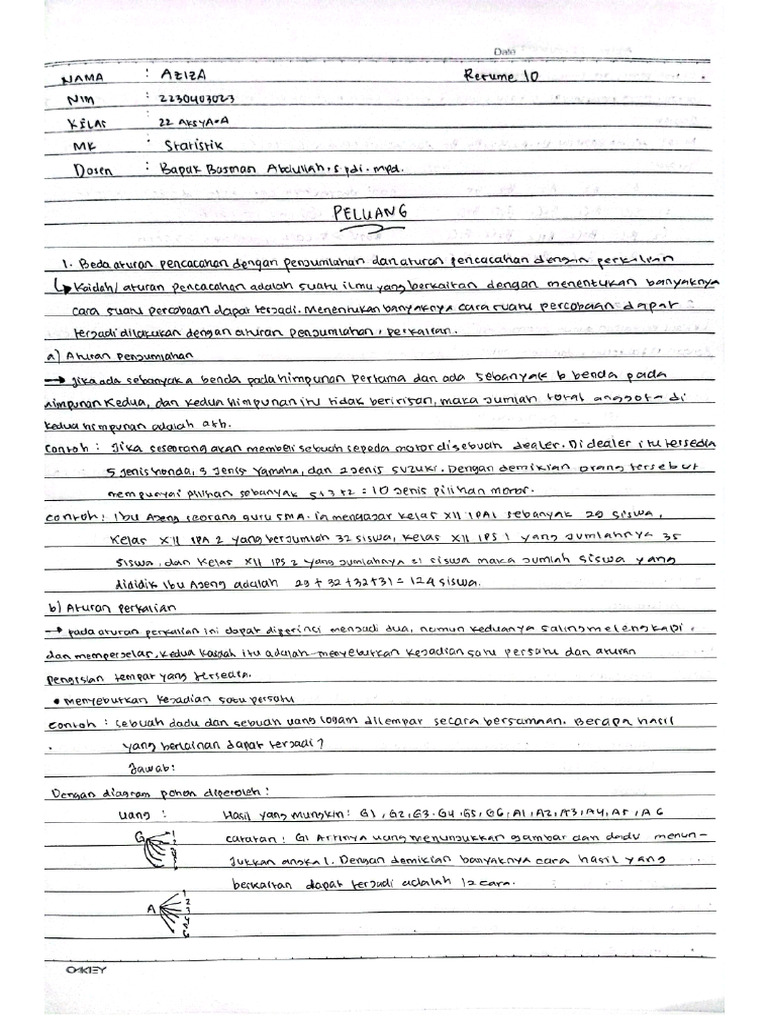 Date
NAMA : AZIZA Resume 10
NIM : 2230403023
KELAS : 22 AKSYA-A
MK : Statistik
Dosen : Bapak Busman Abdullah. S.pdi. mpd.
PELUANG
1. Beda aturan pencacahan dengan penjumlahan dan aturan pencacahan dengan perkalian
↳ Kaidah/ aturan pencacahan adalah suatu ilmu yang berkaitan dengan menentukan banyaknya
cara suatu percobaan dapat terjadi. Menentukan banyaknya cara suatu percobaan dapat
terjadi dilakukan dengan aturan penjumlahan, perkalian.
a) Aturan penjumlahan
→ Jika ada sebanyak a benda pada himpunan pertama dan ada sebanyak b benda pada
himpunan kedua, dan kedua himpunan itu tidak beririsan, maka jumlah total anggota di
kedua himpunan adalah a+b.
Contoh : Jika seseorang akan membeli sebuah sepeda motor di sebuah dealer. Di dealer itu tersedia
5 jenis honda, 3 jenis Yamaha, dan 2 jenis suzuki. Dengan demikian orang tersebut
mempunyai pilihan sebanyak 5+3+2 = 10 jenis pilihan motor.
contoh : Ibu Ajeng seorang guru SMA. ia mengajar kelas XII IPA1 sebanyak 29 siswa,
kelas XII IPA 2 yang berjumlah 32 siswa, kelas XII IPS 1 yang jumlahnya 35
siswa, dan kelas XII IPS 2 yang jumlahnya 21 siswa maka jumlah siswa yang
dididik Ibu Ajeng adalah 29 + 32 +32+31 = 124 siswa.
b) Aturan perkalian
→ pada aturan perkalian ini dapat diperinci menjadi dua, namun keduanya saling melengkapi.
dan memperjelas, kedua kaidah itu adalah menyebutkan kejadian satu persatu dan aturan
pengisian tempat yang tersedia.
• menyebutkan kejadian satu persatu
Contoh : sebuah dadu dan sebuah uang logam dilempar secara bersamaan. Berapa hasil
yang berlainan dapat terjadi?
Jawab:
Dengan diagram pohon diperoleh :
uang : Hasil yang mungkin: G1, G2, G3. G4, G5, G6, A1, A2, A3, A4, A5, A6
G 1 2 catatan : G1 Artinya uang menunjukkan gambar dan dadu menun-
jukkan angka 1. Dengan demikian banyaknya cara hasil yang
berkaitan dapat terjadi adalah 12 cara.
A 1 2 3
OAKLEY